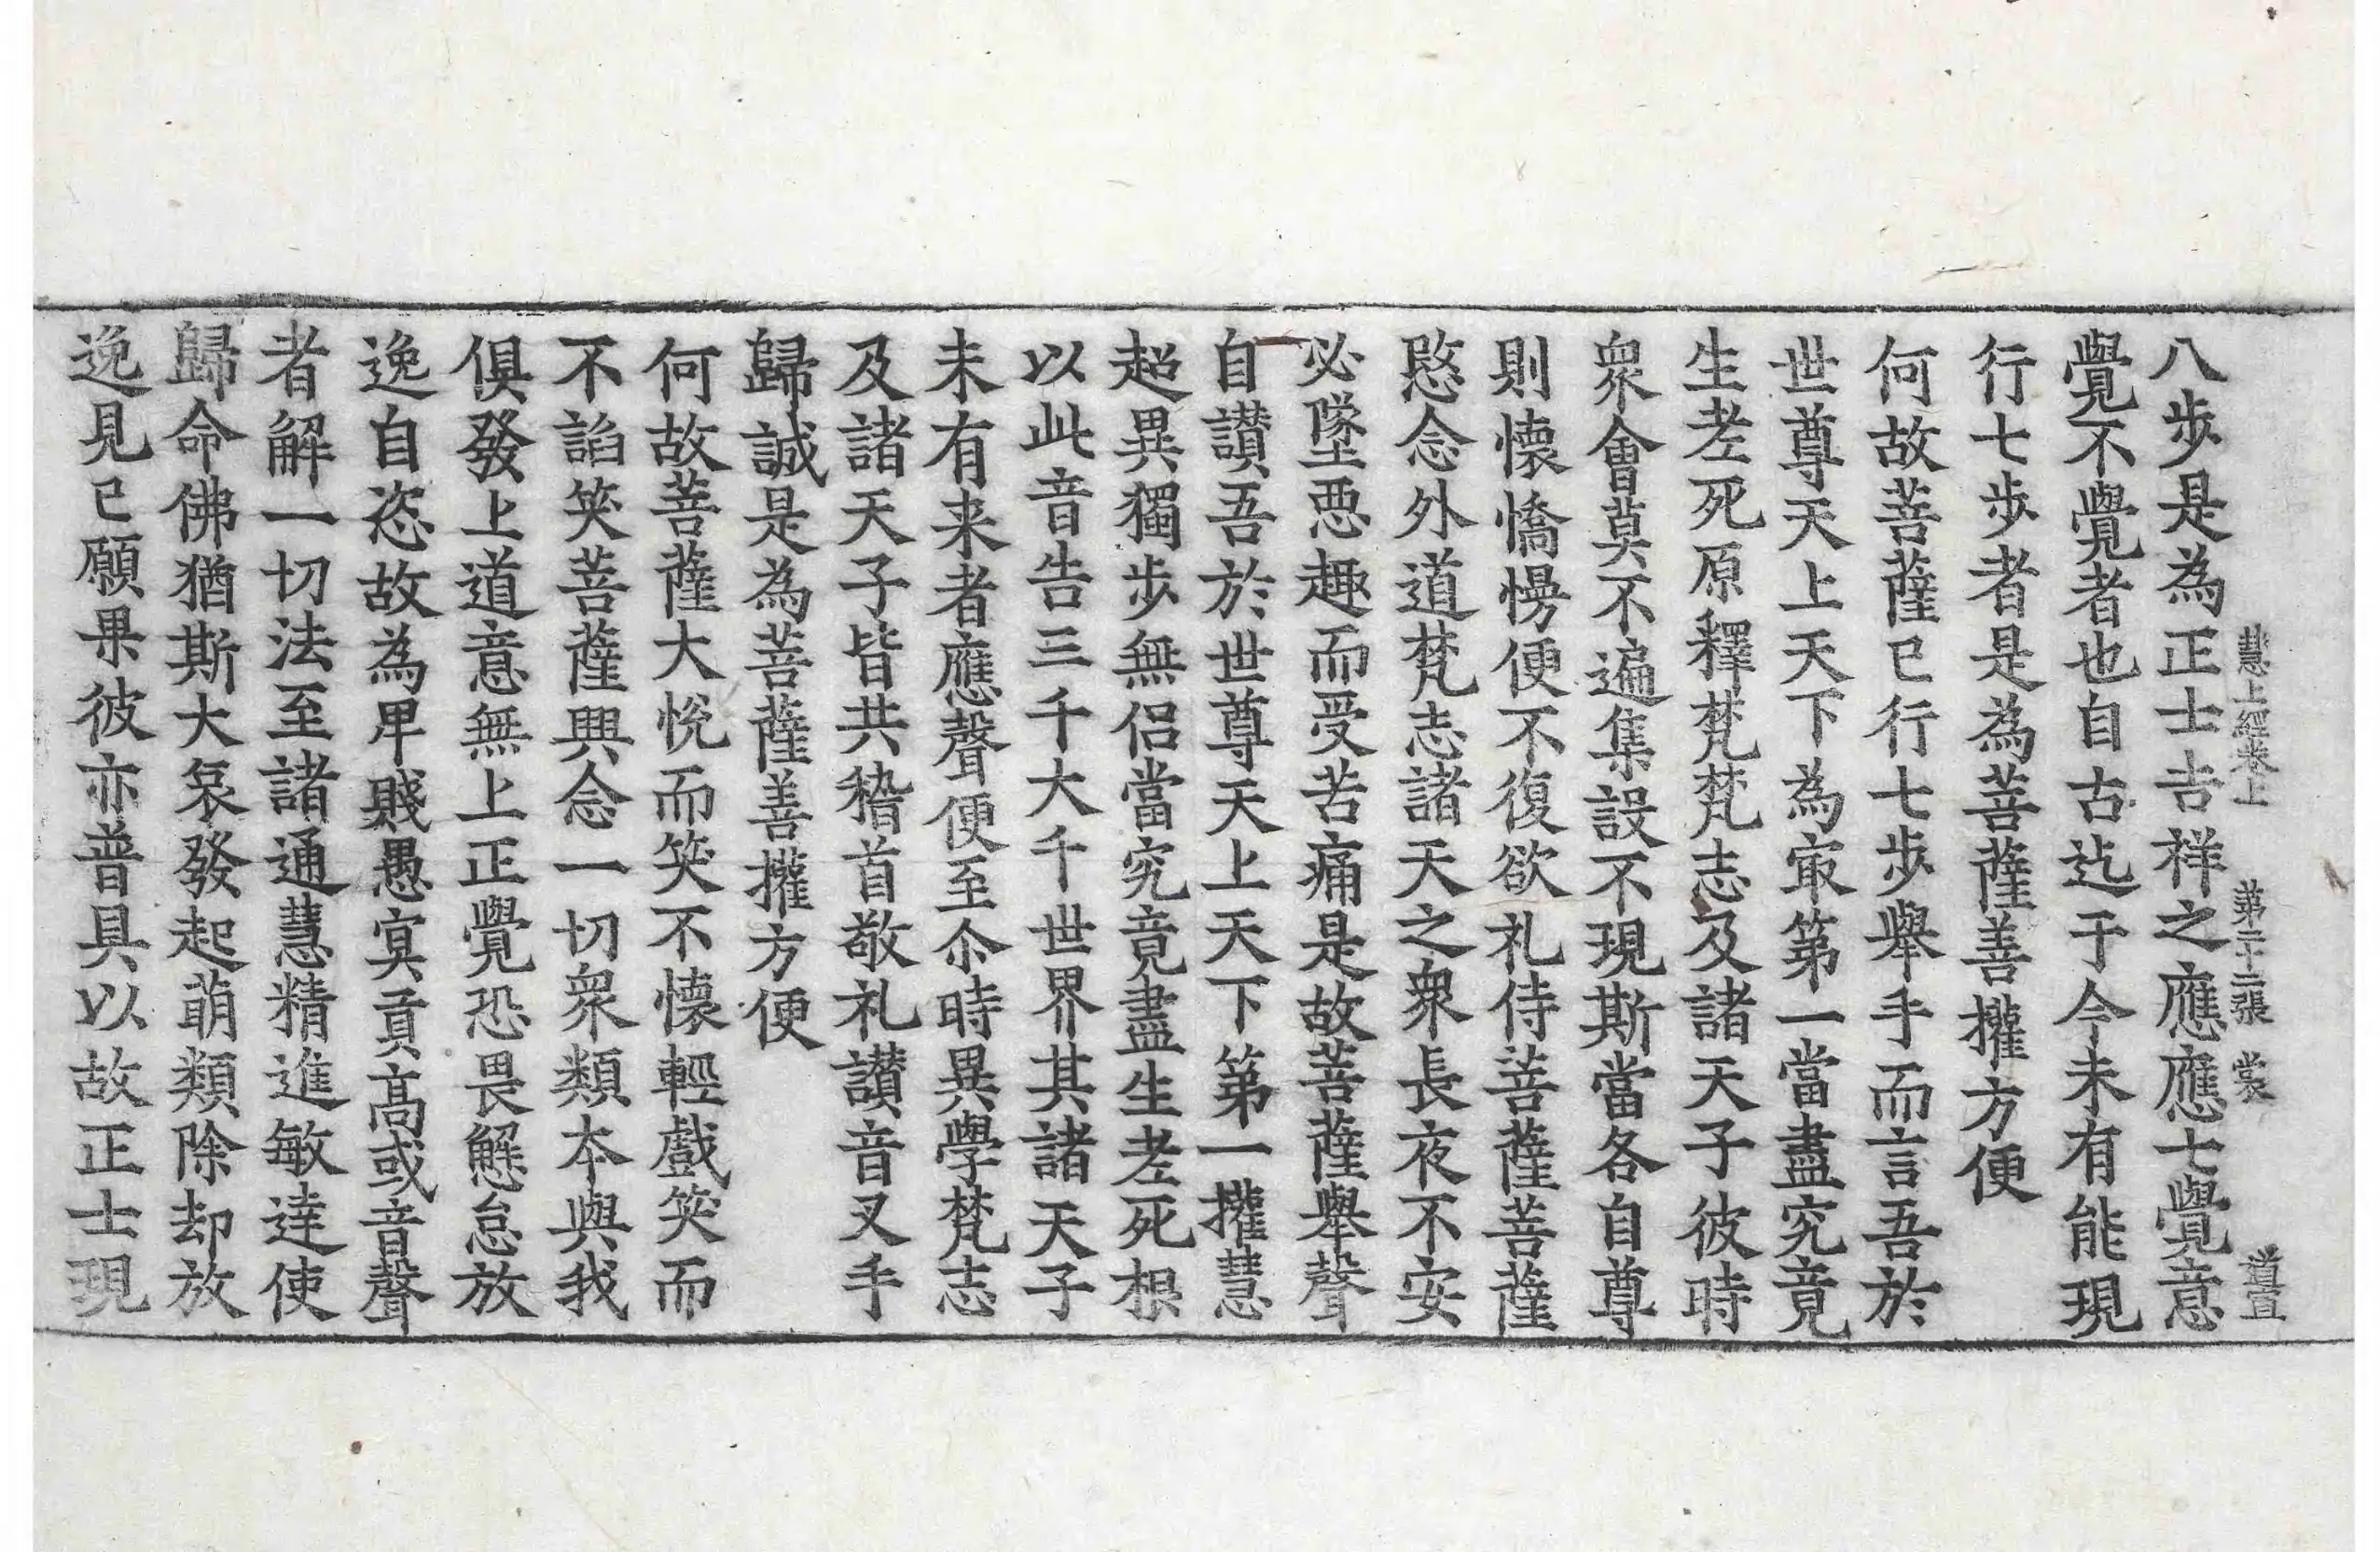 慧上經卷上 第二十二張 裳 道宣
八步是為正士吉祥之應應七覺意
覺不覺者也自古迄于今未有能現
行七步者是為菩薩善權方便
何故菩薩已行七步舉手而言吾於
世尊天上天下為㝡第一當盡究竟
生老死原釋梵梵志及諸天子彼時
衆會莫不遍集設不現斯當各自尊
則懷憍慢便不復欲礼侍菩薩菩薩
愍念外道梵志諸天之衆長夜不安
必墜惡趣而受苦痛是故菩薩舉聲
自讃吾於世尊天上天下第一權慧
超異獨步無侣當究竟盡生老死根
以此音告三千大千世界其諸天子
未有来者應聲便至尒時異學梵志
及諸天子皆共稽首敬礼讃音叉手
歸誠是為菩薩善權方便
何故菩薩大悅而笑不懷輕戲笑而
不諂笑菩薩興念一切衆類本與我
俱發上道意無上正覺恐畏懈怠放
逸自恣故為卑賤愚冥貢高或音聲
者解一切法至諸通慧精進敏達使
歸命佛猶斯大哀發起萌類除却放
逸見已願果彼亦普具以故正士現